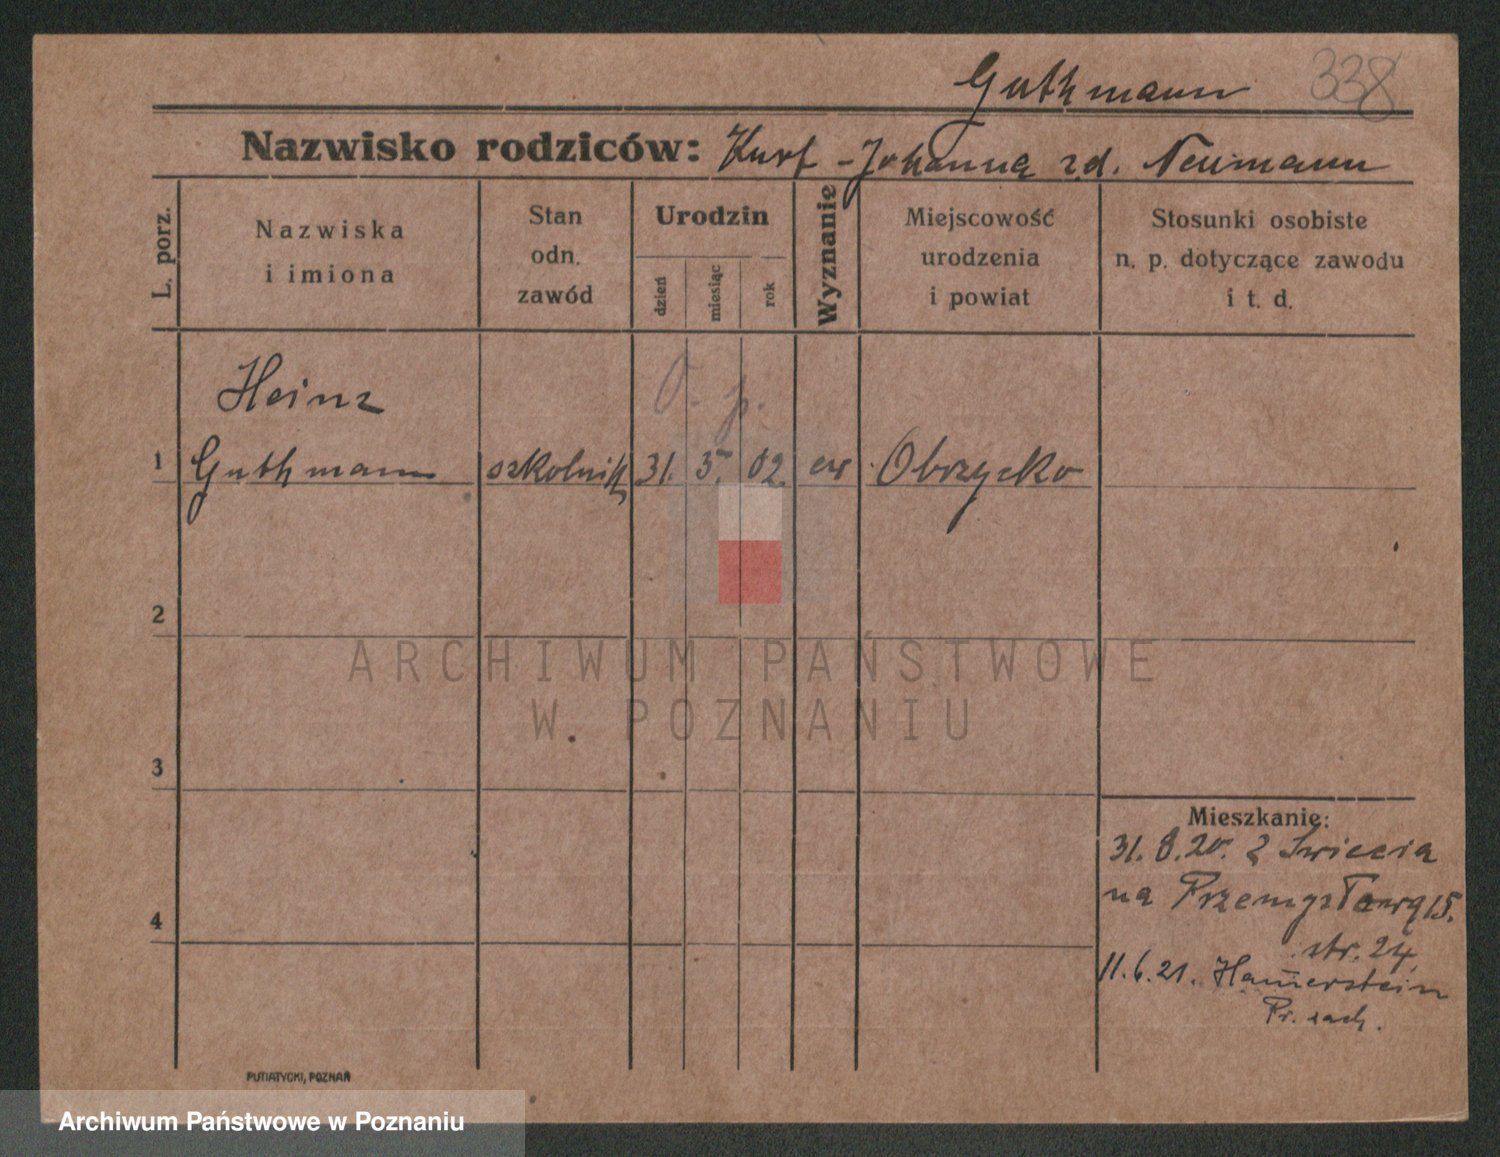 Guthmann 338
Nazwisko rodziców: Kurt - Johanna zd. Neumann
L. porz.
Nazwiska
i imiona
Stan
odn.
zawód
Urodzin
dzień
miesiąc
rok
Wyznanie
Miejscowość
urodzenia
i powiat
Stosunki osobiste
n. p. dotyczące zawodu
i t. d.
Heinz
O. p.
1 Guthmann szkolnik 31. 5. 02. ew Obrzycko
2
ARCHIWUM PAŃSTWOWE
W POZNANIU
3
Mieszkanie:
31. 8. 20. z Świecia
na Przemysłową 15.
str. 24.
4
11. 6. 21. Hamerstein
Pr. zach.
PUTIATYCKI, POZNAŃ
Archiwum Państwowe w Poznaniu